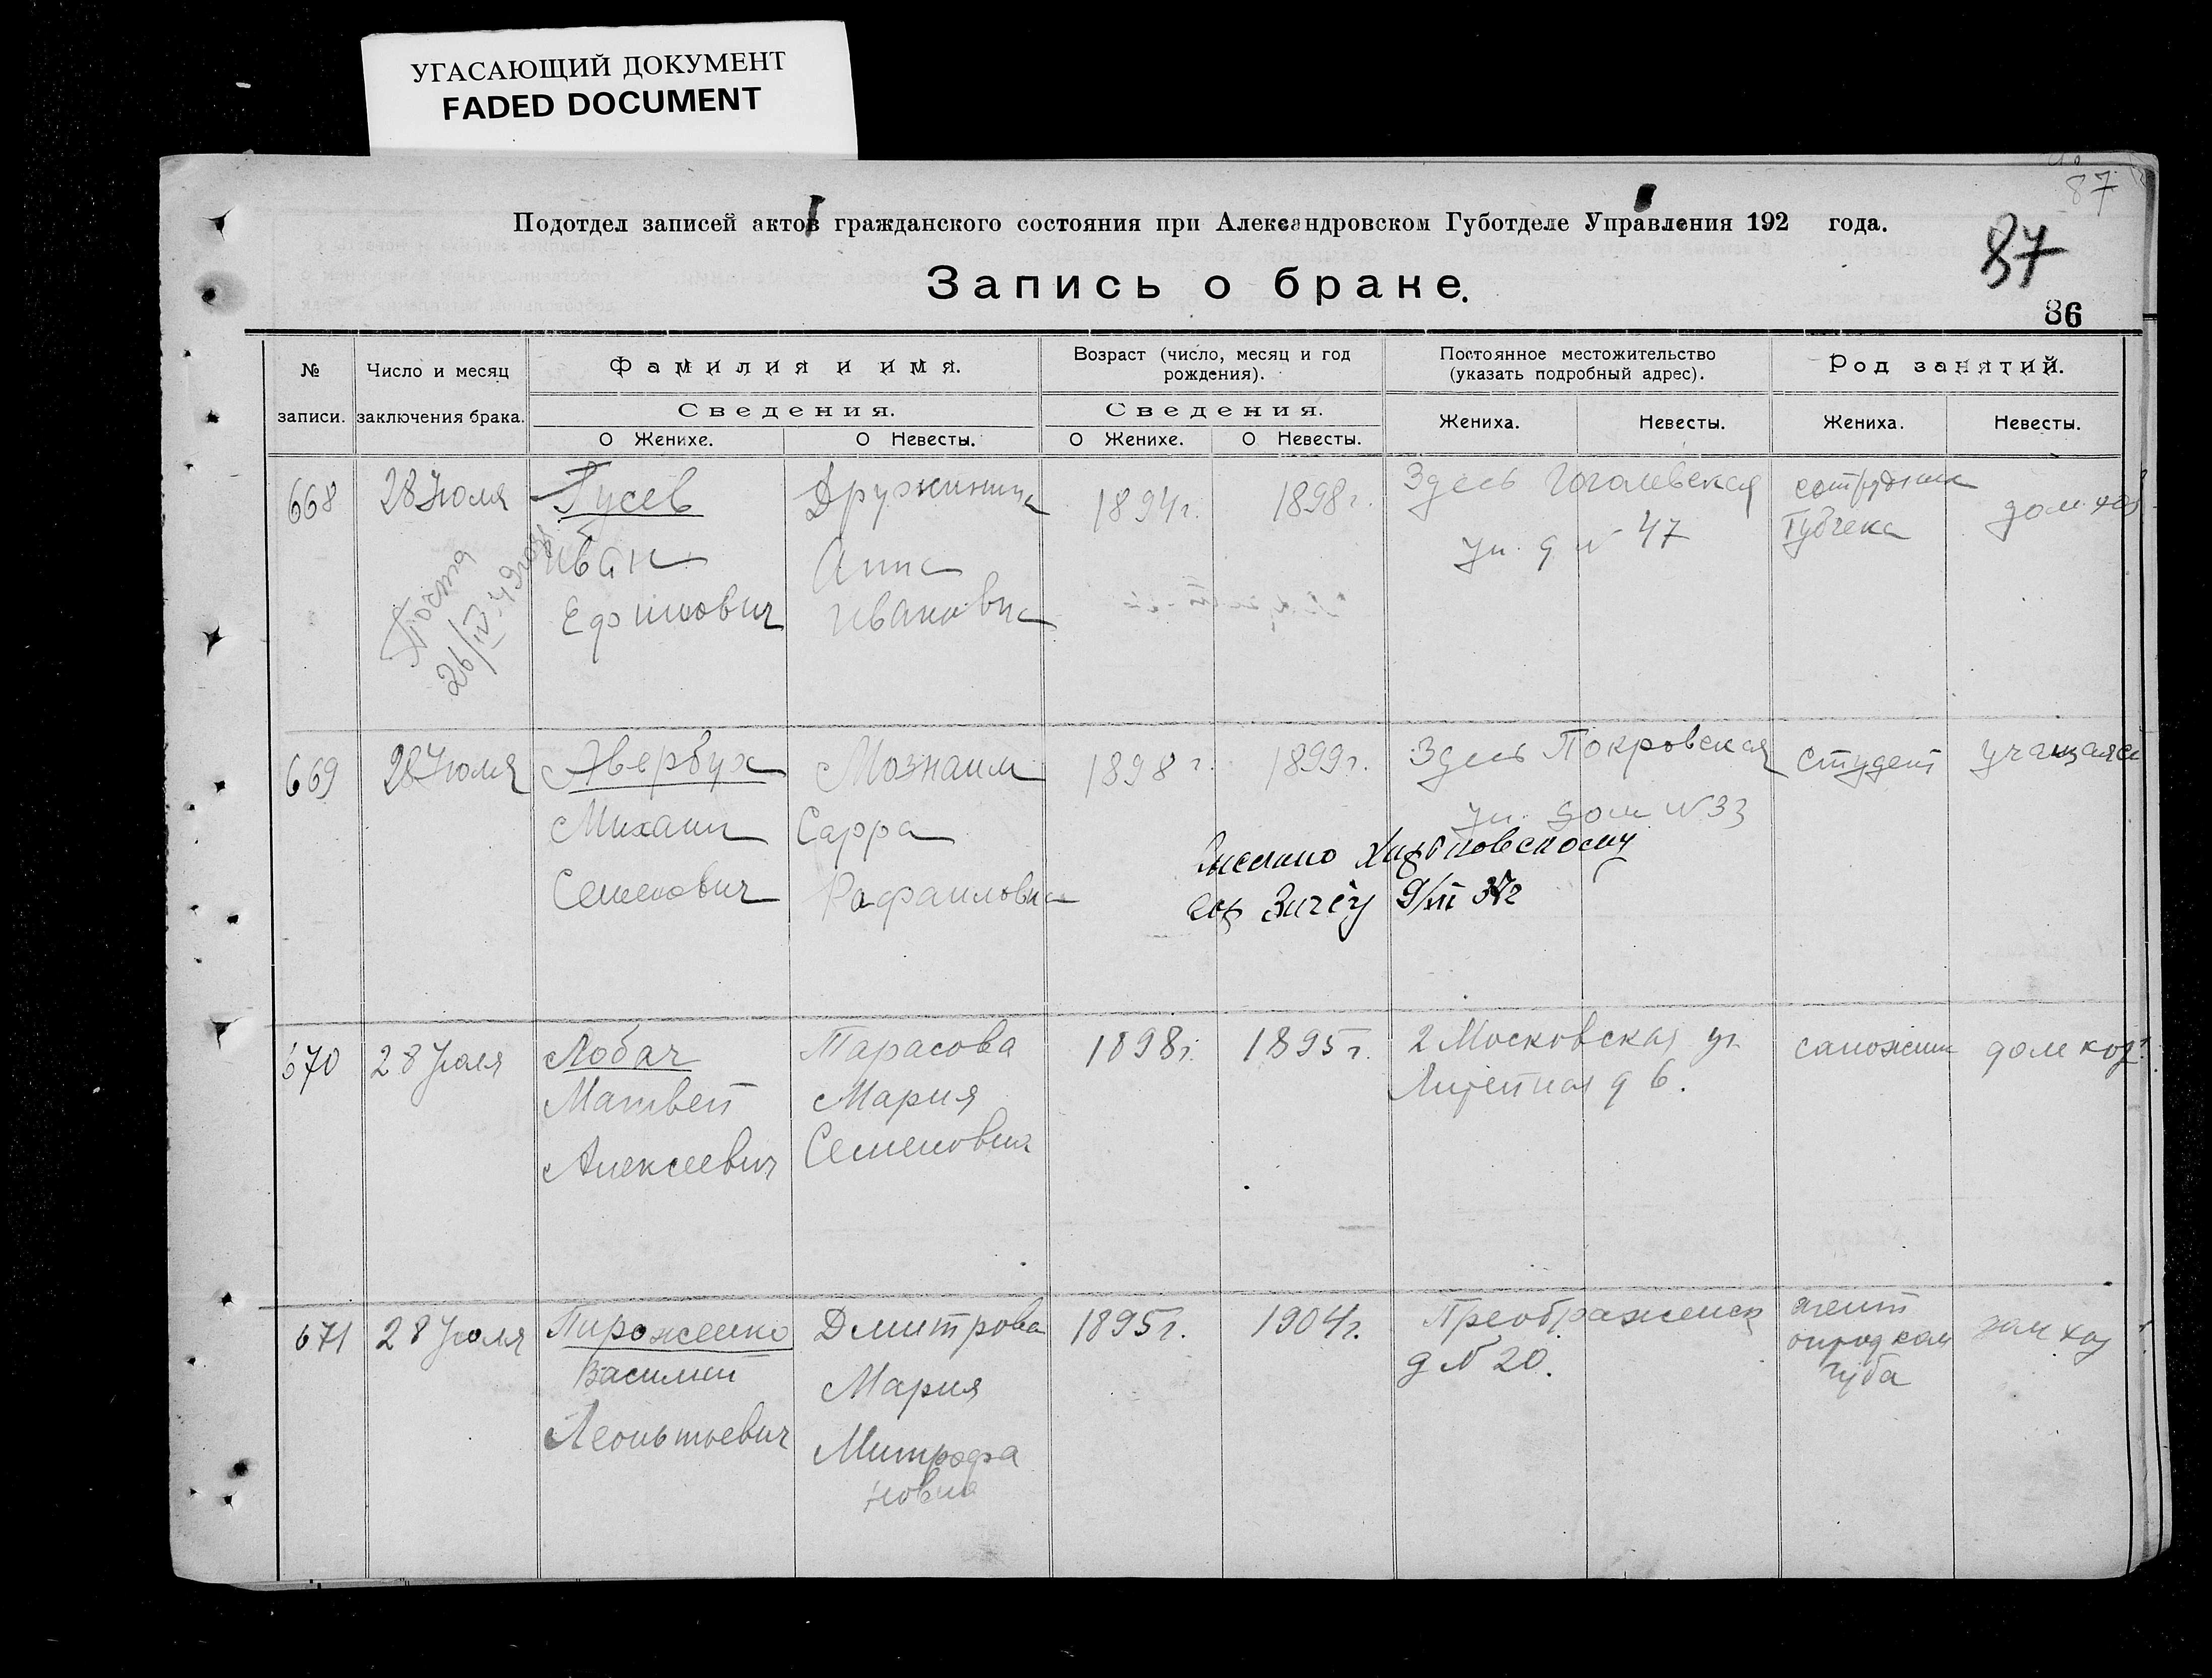 УГАСАЮЩИЙ ДОКУМЕНТ
FADED DOCUMENT
87
Подотдел записей актов гражданского состояния при Александровском Губотделе Управления 192 года.
87
Запись о браке.
86
№ записи.
Число и месяц заключения брака.
Фамилия и имя.
Сведения.
О Женихе.
О Невесты.
Возраст (число, месяц и год рождения).
Сведения.
О Женихе.
О Невесты.
Постоянное местожительство (указать подробный адрес).
Жениха.
Невесты.
Род занятий.
Жениха.
Невесты.
668
28 Июля
Гусев
Иван
Ефимович
Дружинина
Анна
Ивановна
1894г.
1898г.
Здесь Гоголевская
ул. д № 47
сотрудник
Губчека
дом. хоз
26/IV
669
28 Июля
Авербух
Михаил
Семенович
Мознаим
Сарра
Рафаиловна
1898 г.
1899г.
Здесь Покровская
ул. дом № 33
студент
учащаяся
9/XII 37г
670
28 Июля
Лобач
Матвей
Алексеевич
Тарасова
Мария
Семеновна
1898г.
1895г.
2 Московская ул
Литейная д 6.
сапожник
дом хоз.
671
28 Июля
Пироженко
Василий
Леонтьевич
Дмитрова
Мария
Митрофа
новна
1895г.
1904г.
Преображенск
д № 20.
агент
опродком
губа
дом хоз